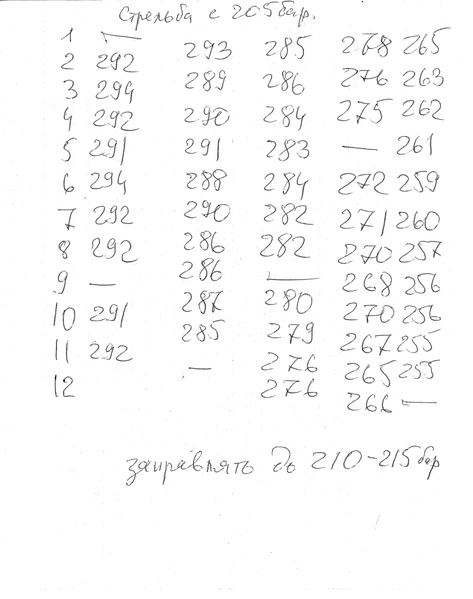 Стрельба с 205 бар.
1 — 293 285 278 265
2 292 289 286 276 263
3 294 290 284 275 262
4 292 291 283 — 261
5 291 288 284 272 259
6 294 290 282 271 260
7 292 286 282 270 257
8 292 286 — 268 256
9 — 287 280 270 256
10 291 285 279 267 255
11 292 — 276 265 255
12 276 266 —
заправлять до 210-215 бар